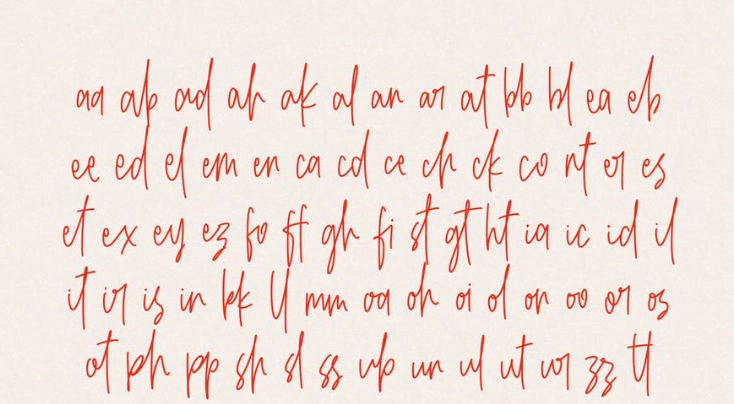 aa ab ad ah ak al an ar at bb bl ea eb
ee ed el em en ca cd ce ch ck co nt er es
et ex ey ez fo ff gh fi st gt ht ia ic id il
it ir is in kk ll mm oa oh oi ol on oo or os
ot ph pp sh sl ss ub un ul ut ur zz tt